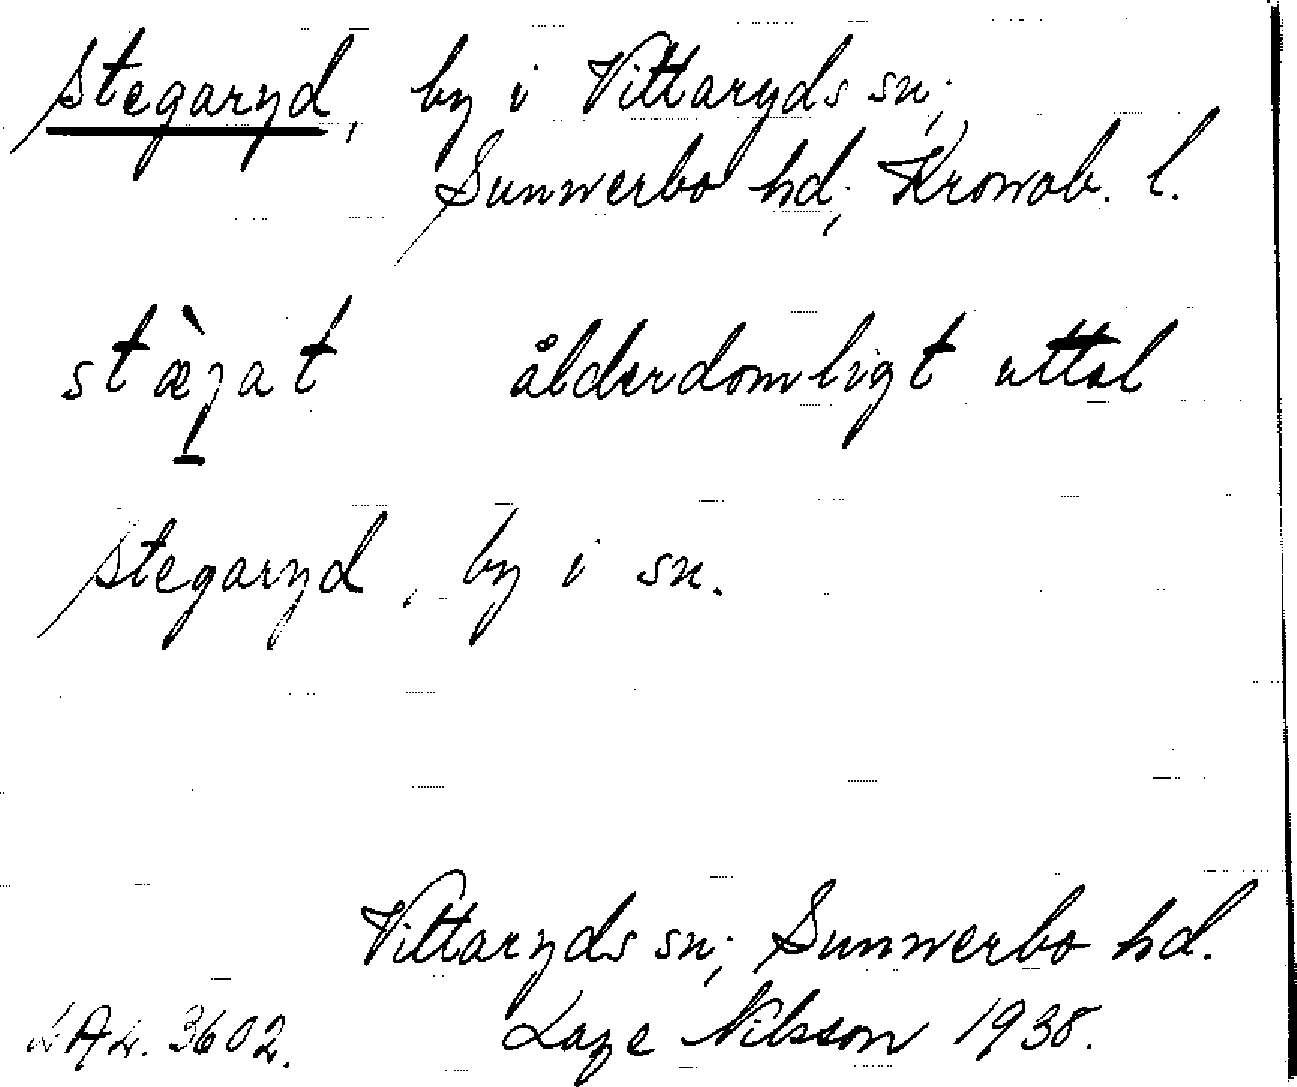 Stegaryd, by i Vittaryds sn;
Sunnerbo hd; Kronob. l.
stæ̀gat ålderdomligt uttal
Stegaryd, by i sn.
Vittaryds sn; Sunnerbo hd.
LAL. 3602. Lage Nilsson 1938.